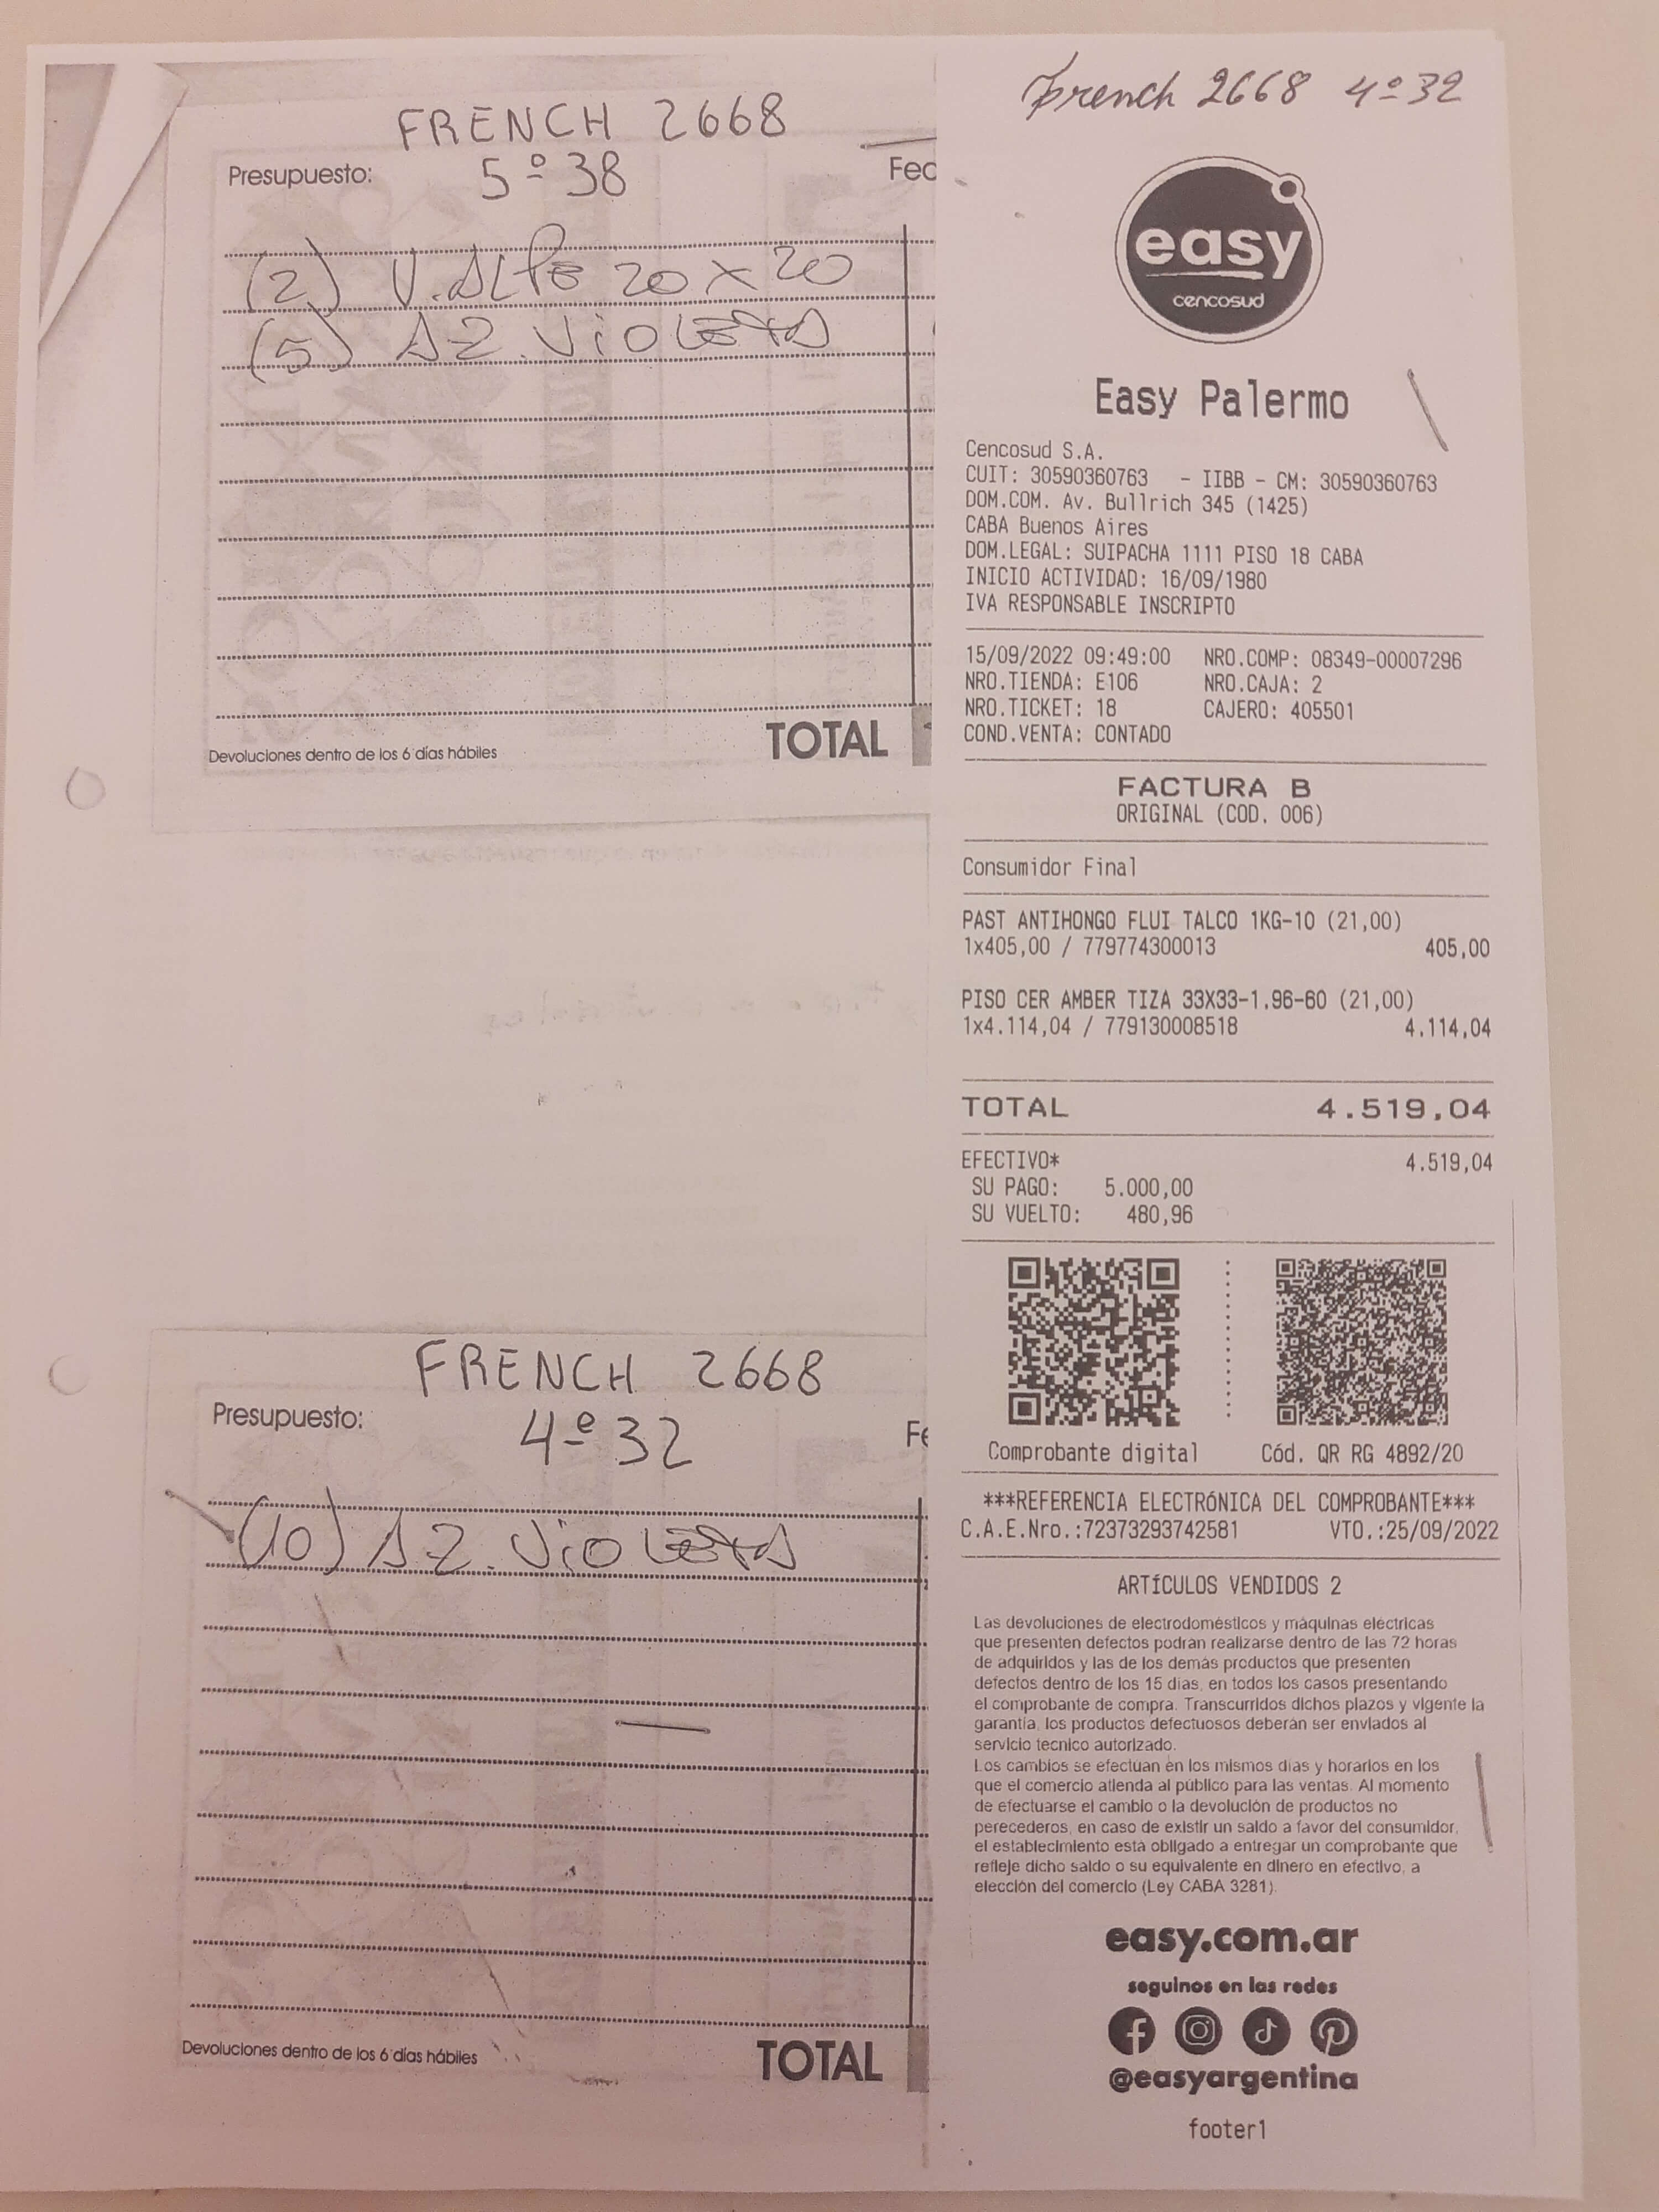 FRENCH 2668
Presupuesto: 5º38
Fec
(2) V. ALPE 20 x 20
(5) AZ. VIOLETA
TOTAL
Devoluciones dentro de los 6 días hábiles
FRENCH 2668
Presupuesto: 4º32
Fe
(10) AZ. VIOLETA
TOTAL
Devoluciones dentro de los 6 días hábiles
French 2668 4º 32
easy
cencosud
Easy Palermo
Cencosud S.A.
CUIT: 30590360763 - IIBB - CM: 30590360763
DOM.COM. Av. Bullrich 345 (1425)
CABA Buenos Aires
DOM.LEGAL: SUIPACHA 1111 PISO 18 CABA
INICIO ACTIVIDAD: 16/09/1980
IVA RESPONSABLE INSCRIPTO
15/09/2022 09:49:00 NRO.COMP: 08349-00007296
NRO.TIENDA: E106 NRO.CAJA: 2
NRO.TICKET: 18 CAJERO: 405501
COND.VENTA: CONTADO
FACTURA B
ORIGINAL (COD. 006)
Consumidor Final
PAST ANTIHONGO FLUI TALCO 1KG-10 (21,00)
1x405,00 / 779774300013 405,00
PISO CER AMBER TIZA 33X33-1.96-60 (21,00)
1x4.114,04 / 779130008518 4.114,04
TOTAL 4.519,04
EFECTIVO* 4.519,04
SU PAGO: 5.000,00
SU VUELTO: 480,96
Comprobante digital Cód. QR RG 4892/20
***REFERENCIA ELECTRÓNICA DEL COMPROBANTE***
C.A.E.Nro.:72373293742581 VTO.:25/09/2022
ARTÍCULOS VENDIDOS 2
Las devoluciones de electrodomésticos y máquinas eléctricas
que presenten defectos podran realizarse dentro de las 72 horas
de adquiridos y las de los demás productos que presenten
defectos dentro de los 15 dias, en todos los casos presentando
el comprobante de compra. Transcurridos dichos plazos y vigente la
garantía, los productos defectuosos deberán ser enviados al
servicio tecnico autorizado.
Los cambios se efectuan en los mismos días y horarios en los
que el comercio atienda al público para las ventas. Al momento
de efectuarse el cambio o la devolución de productos no
perecederos, en caso de existir un saldo a favor del consumidor,
el establecimiento está obligado a entregar un comprobante que
refleje dicho saldo o su equivalente en dinero en efectivo, a
elección del comercio (Ley CABA 3281).
easy.com.ar
seguinos en las redes
@easyargentina
footer1